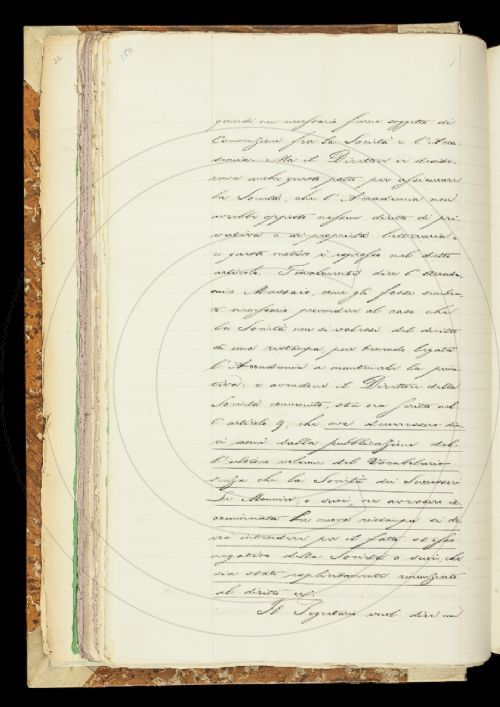 quindi non necessario farne soggetto di
Convenzione fra la Società e l'Acca-
demia. Ma il Direttore vi deside-
rava anche questo patto per assicurare
la Società, che l'Accademia non
avrebbe opposto nessun diritto di pri-
vativa o di proprietà letteraria: e
questo motivo è espresso nel detto
articolo. Finalmente dice l'Accade-
mico Massaio, come gli fosse sembra-
to necessario prevedere al caso che
la Società non si valesse del diritto
di una ristampa pur tenendo legata
l'Accademia a mantenerle la priva-
tiva: e avendone il Direttore della
Società convenuto, sta ora scritto nel-
l'articolo 9, che ove decorressero die-
ci anni dalla pubblicazione del-
l'ultimo volume del Vocabolario
senza che la Società dei Successori
Le Monnier, o suoi, ne avessero in-
cominciata la nuova ristampa, si do-
vrà intendere per il fatto stesso
negativo della Società o suoi, che
sia stato esplicitamente rinunziato
al diritto ec.
Il Segretario vuol dire un